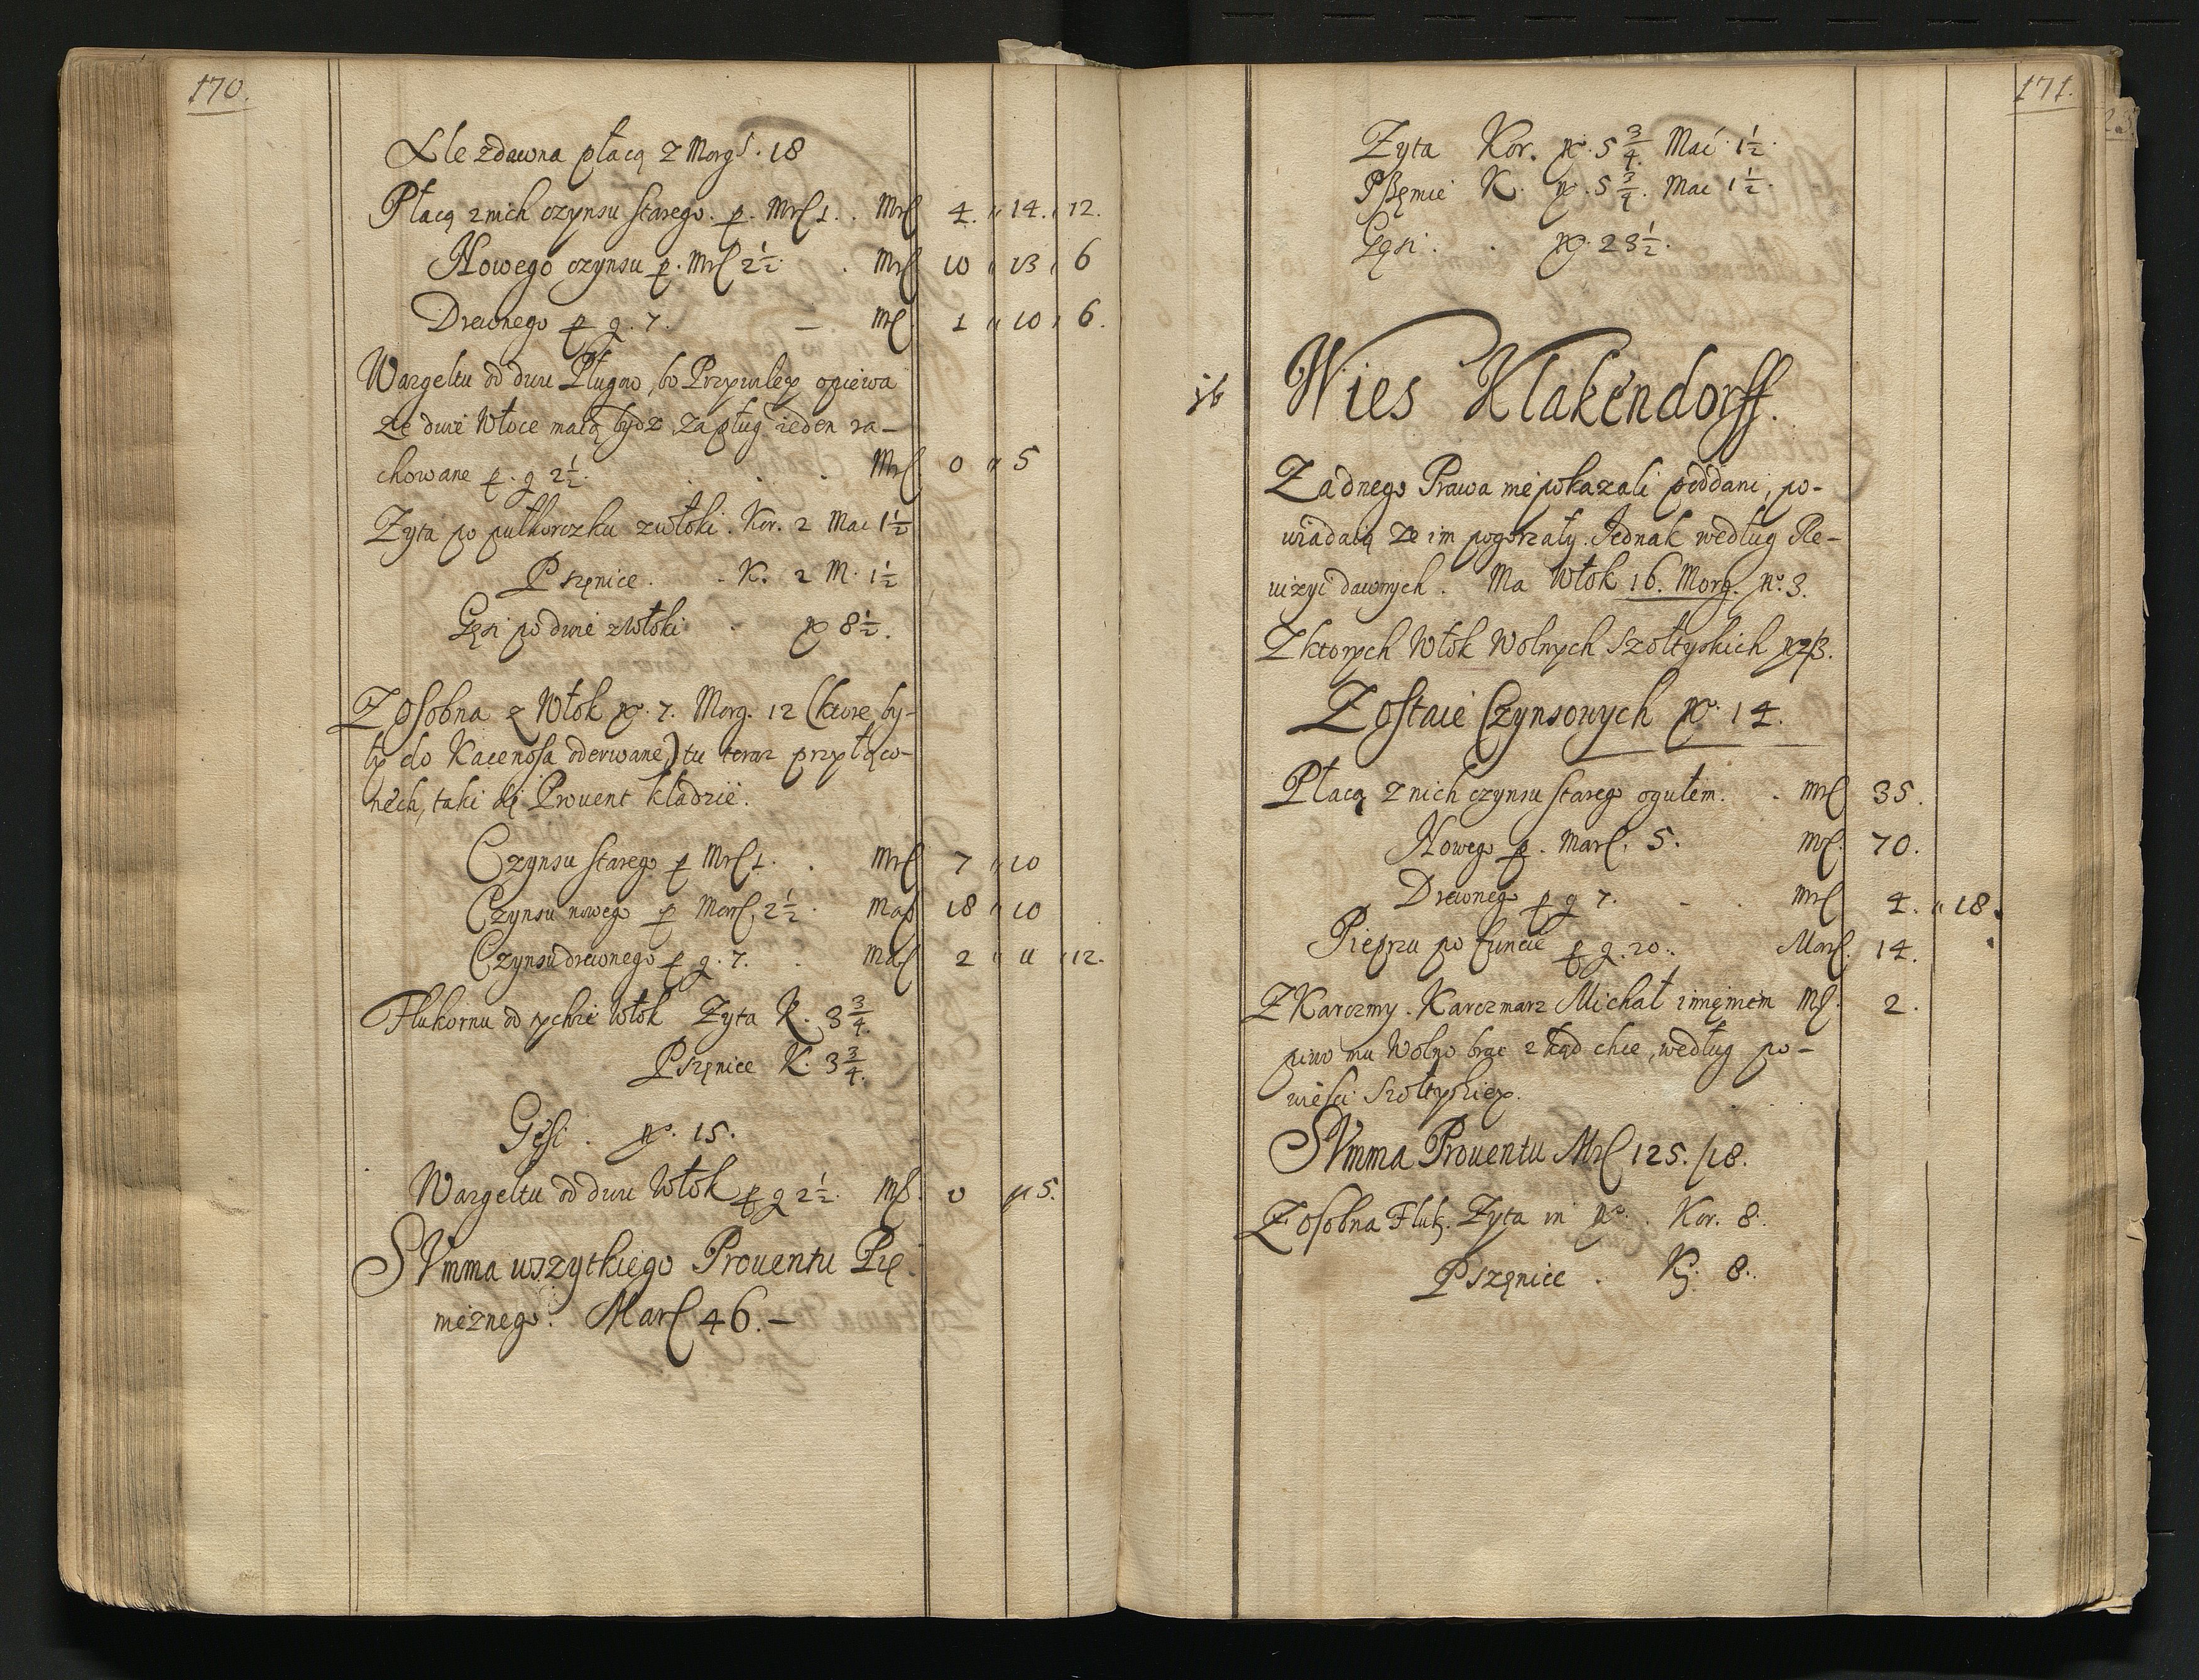 170.
Ale zdawna płacą z Morg. 18
Płacą z nich czynsu starego. p. Mrl 1. . Mrl 4. 14. 12.
Nowego czynsu p. Mrl 2½. . Mrl 10 13 6
Drewnego p g. 7. — Ml. 1 10 6.
Wargeltu od dwu Pługow, bo Przywiley opiewa
ze dwie Włoce maią bydz za pług ieden ra-
chowane p. g 2½. . . . Mrl 0 5
Zyta po pułkorczku z włoki. Kor. 2 Mac 1½
Pszęnice. . K. 2 M. 1½
Gęsi po dwie z Włoki . no 8½.
Z osobna z Włok no. 7. Morg. 12 (ktore by-
ły do Kacenosa oderwane) tu teraz przyłączo-
nech, taki się Prouent kładzie.
Czynsu starego p Mrl 1. . Mrl 7 10
Czynsu nowego p Marl. 2½. Mal 18 10
Czynsu drewnego p g. 7. . Mal 2 11 12.
Flukornu od tychże Włok Zyta K. 3¾.
Pszęnice K. 3¾.
Gęsi . no. 15.
Wargeltu od dwu Włok p g 2½. Ml. 0 5.
SVmma wszytkiego Prouentu Pię-
nieznego. Marl 46. —
171.
Zyta Kor. no. 5¾. Mac 1½.
Pszęnice K. no. 5¾. Mac 1½.
Gęsi . . no. 23½.
16
Wies Klakendorff.
Zadnego Prawa nie pokazali poddani, po-
wiadaią ze im pogorzały. Jednak według Re-
wizyi dawnych. Ma Włok 16. Morg. no. 3.
Z ktorych Włok Wolnych Szołtyskich
Zostaie Czynsowych no. 14.
Płacą z nich czynsu starego ogułem. . Mrl 35.
Nowego p. Marl. 5. Mrl. 70.
Drewnego p g 7. - . Mrl 4. 18.
Pieprzu po funcie p g. 20.. Marl. 14.
Z Karczmy. Karczmarz Michał imięniem Ml. 2.
piwo mu Wolno brac z kąd chce, według po-
wieści szołtyskiey.
SVmma Prouentu Mrl 125. /18.
Z osobna Fluk. Zyta in no. . Kor. 8.
Pszęnice . K. 8.